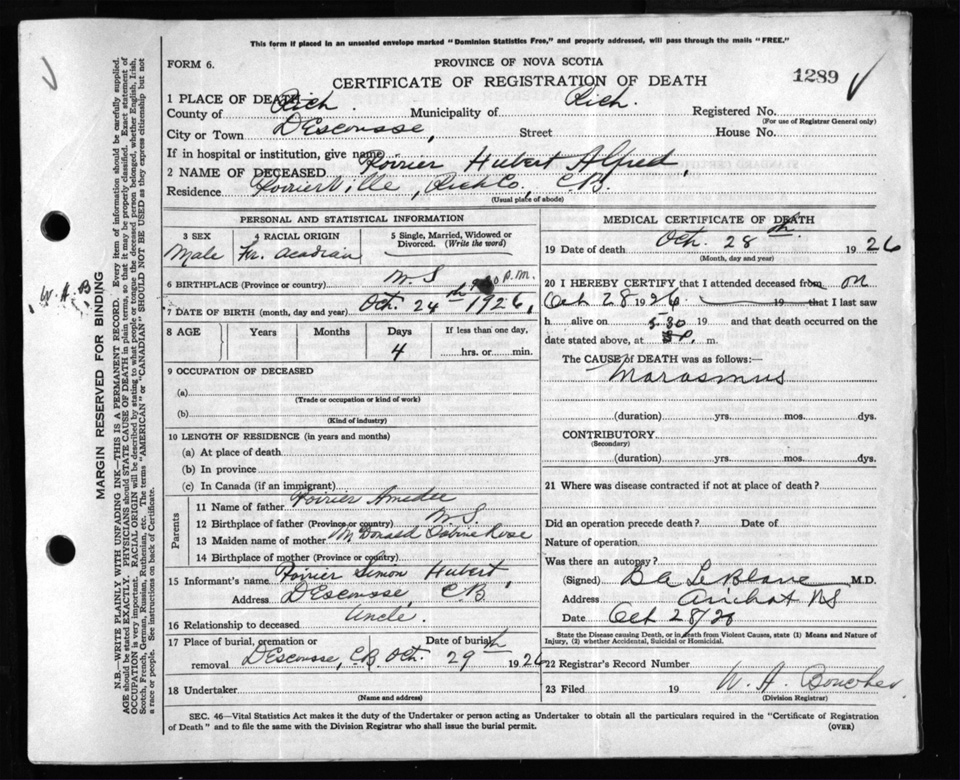 This form if placed in an unsealed envelope marked "Dominion Statistics Free," and properly addressed, will pass through the mails "FREE."
FORM 6.
PROVINCE OF NOVA SCOTIA
CERTIFICATE OF REGISTRATION OF DEATH
1289
1 PLACE OF DEATH
County of Rich. Municipality of Rich. Registered No.
(For use of Registrar General only)
City or Town D'Escousse, Street House No.
If in hospital or institution, give name
2 NAME OF DECEASED Poirier Hubert Alfred,
Residence Poirier Ville, Rich Co, C.B.
(Usual place of abode)
PERSONAL AND STATISTICAL INFORMATION
3 SEX Male
4 RACIAL ORIGIN Fr. Acadian
5 Single, Married, Widowed or Divorced. (Write the word)
6 BIRTHPLACE (Province or country) N.S
P.M.
7 DATE OF BIRTH (month, day and year) Oct. 24th 1926,
8 AGE Years Months Days If less than one day,
4 hrs. or min.
9 OCCUPATION OF DECEASED
(a)
(Trade or occupation or kind of work)
(b)
(Kind of industry)
10 LENGTH OF RESIDENCE (in years and months)
(a) At place of death
(b) In province
(c) In Canada (if an immigrant)
Parents
11 Name of father Poirier Amedee
12 Birthplace of father (Province or country) N.S.
13 Maiden name of mother McDonald Rose
14 Birthplace of mother (Province or country)
15 Informant's name Poirier Simon Hubert,
Address D'Escousse, C.B
16 Relationship to deceased Uncle.
17 Place of burial, cremation or removal Date of burial
D'Escousse, C.B Oct. 29th 1926
18 Undertaker
(Name and address)
MEDICAL CERTIFICATE OF DEATH
19 Date of death Oct. 28th 1926
(Month, day and year)
20 I HEREBY CERTIFY that I attended deceased from on
Oct 28 1926 19 that I last saw
h alive on 5-30 19 and that death occurred on
date stated above, at m.
The CAUSE of DEATH was as follows:—
Marasmus
(duration) yrs. mos. dys.
CONTRIBUTORY
(Secondary)
(duration) yrs. mos. dys.
21 Where was disease contracted if not at place of death?
Did an operation precede death? Date of
Nature of operation
Was there an autopsy?
(Signed) LeBlanc M.D.
Address Arichat NS
Date Oct 28/26
State the Disease causing Death, or in death from Violent Causes, state (1) Means and Nature of
Injury, (2) whether Accidental, Suicidal or Homicidal.
22 Registrar's Record Number
23 Filed 19 W. A. Boucher
(Division Registrar)
SEC. 46—Vital Statistics Act makes it the duty of the Undertaker or person acting as Undertaker to obtain all the particulars required in the "Certificate of Registration
of Death" and to file the same with the Division Registrar who shall issue the burial permit.
(OVER)
MARGIN RESERVED FOR BINDING
W. A. B
N.B.—WRITE PLAINLY WITH UNFADING INK—THIS IS A PERMANENT RECORD. Every item of information should be carefully supplied.
AGE should be stated EXACTLY. PHYSICIANS should STATE CAUSE OF DEATH in plain terms, so that it may be properly classified. Exact statement of
OCCUPATION is very important. RACIAL ORIGIN will be described by stating to what people or tongue the deceased person belonged, whether English, Irish,
Scotch, French, German, Russian, Ruthenian, etc. The terms "AMERICAN" or "CANADIAN" SHOULD NOT BE USED as they express citizenship but not
a race or people. See instructions on back of Certificate.